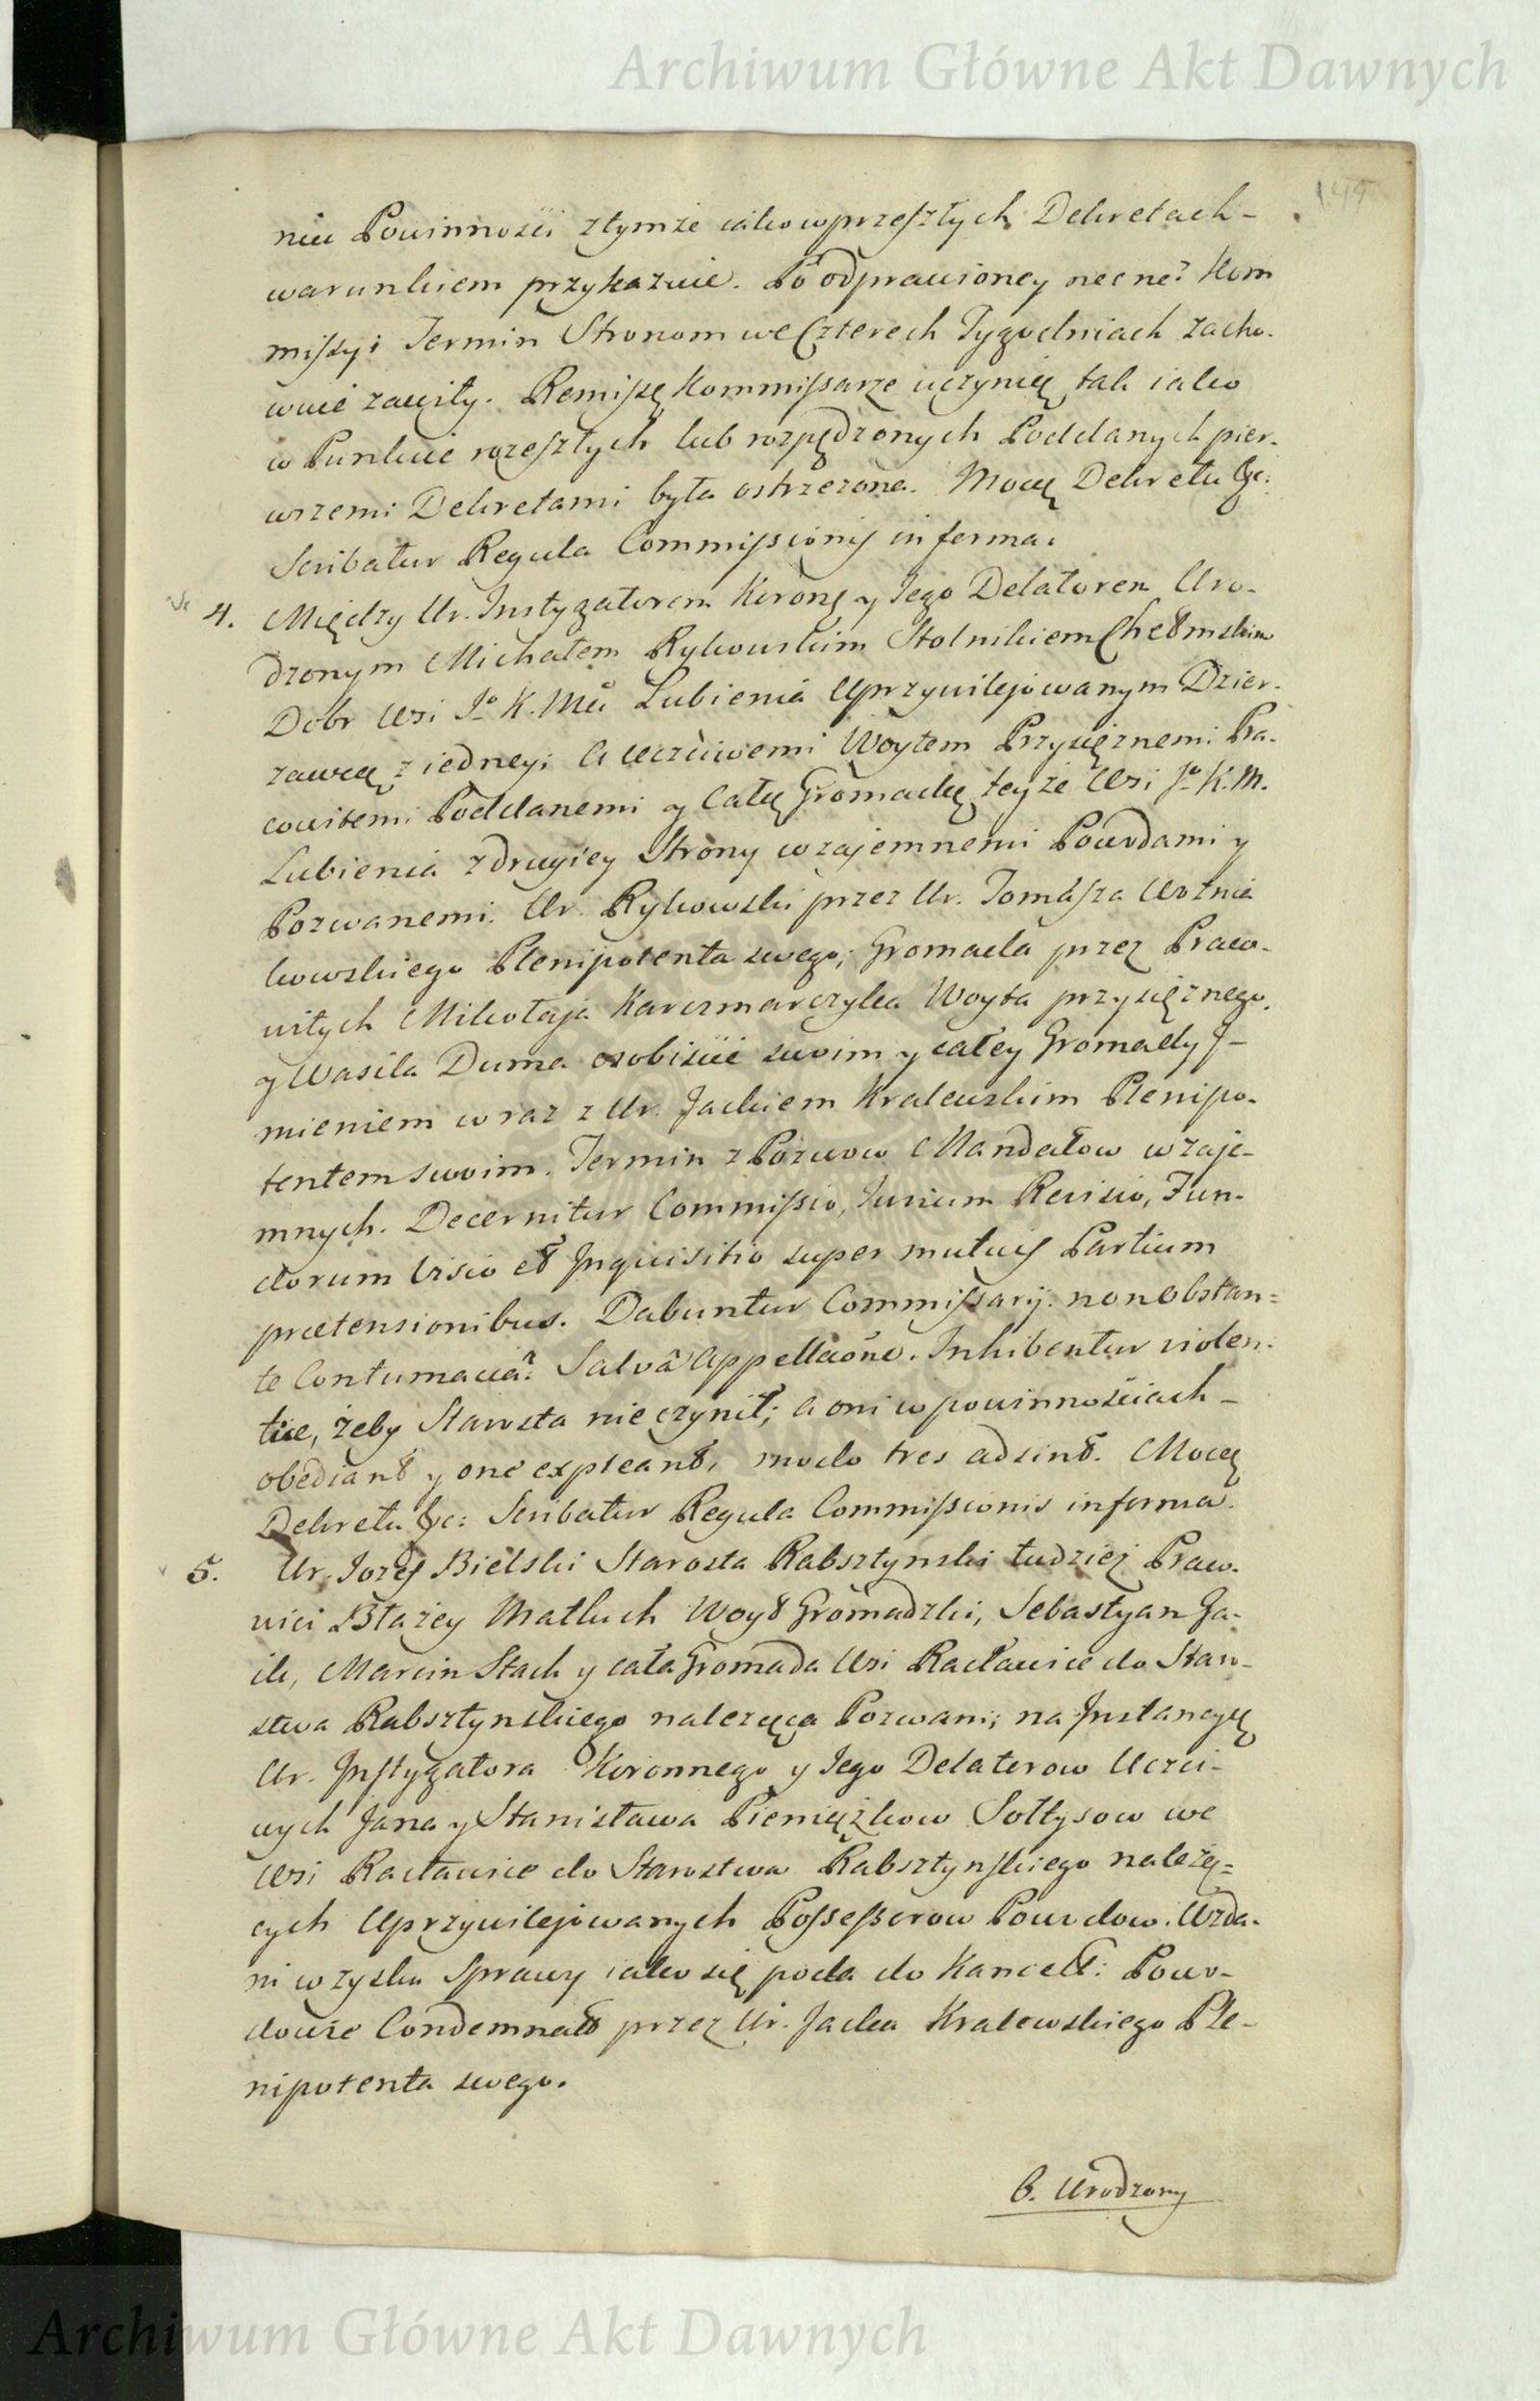 Archiwum Główne Akt Dawnych
144
niu Powinności z tymże iako w przeszłych Dekretach-
warunkiem przykazuie. Po odprawioney nec ne? Kom
missyi Termin Stronom we Czterech Tygodniach zacho-
wuie zawiły. Remissę Kommissarze uczynią tak iako
w Punkcie rozeszłych lub rozpędzonych Poddanych pier-
wszemi Dekretami była ostrzeżona. Mocą Dekretu &c:
Scribatur Regula Commissionis in forma.
4. Między Ur. Instygatorem Koronę y Jego Delatorem Uro-
dzonym Michałem Rykowskim Stolnikiem Chełmskim
Dobr Wsi Jo K. Mci Lubienia Uprzywilejowanym Dzier-
żawcą z iedney; A Uczciwemi Woytem Przysiężnemi Pra-
cowitemi Poddanemi y Całą Gromadą teyże Wsi Jo K. M.
Lubienia z drugiey Strony wzajemnemi Powodami y
Pozwanemi. Ur. Rykowski przez Ur. Tomasza Woznia
kowskiego Plenipotenta swego; Gromada przez Praco-
witych Mikołaja Karczmarczyka Woyta przysiężnego
y Wasila Duma osobiście swoim y całey Gromady J-
mieniem wraz z Ur. Jackiem Kralewskim Plenipo-
tentem swoim. Termin z Pozwow Mandatow wzaje-
mnych. Decernitur Commissio, Jurium Revisio, Fun-
dorum Visio et Inquisitio super mutuis Partium
prætensionibus. Dabuntur Commissarij. non obstan=
te Contumacia? Salvâ Appellaõne. Inhibentur violen-
tiæ, żeby Starosta nie czynił; a oni w powinnościach-
obediant y one expleant, modo tres adsint. Mocą
Dekretu &c: Scribatur Regula Commissionis in forma.
5. Ur. Jozef Bielski Starosta Rabsztynski tudziez Praw-
wici Błażey Matluch Woyt Gromadzki, Sebastyan Ga-
ik, Marcin Stach y cała Gromada Wsi Racławice do Staro-
stwa Rabsztynskiego należąca Pozwani; na Instancyą
Ur. Instygatora Koronnego y Jego Delatorow Uczci-
wych Jana y Stanisława Pieniążkow Sołtysow we
Wsi Racławice do Starostwa Rabsztynskiego należą=
cych Uprzywilejowanych Possessorow Powodow. Wzda-
ni w zysku Sprawy iako się poda do Kancell: Powo-
dowie Condemnat przez Ur. Jacka Kralewskiego Ple-
nipotenta swego.
6. Urodzony
Archiwum Główne Akt Dawnych